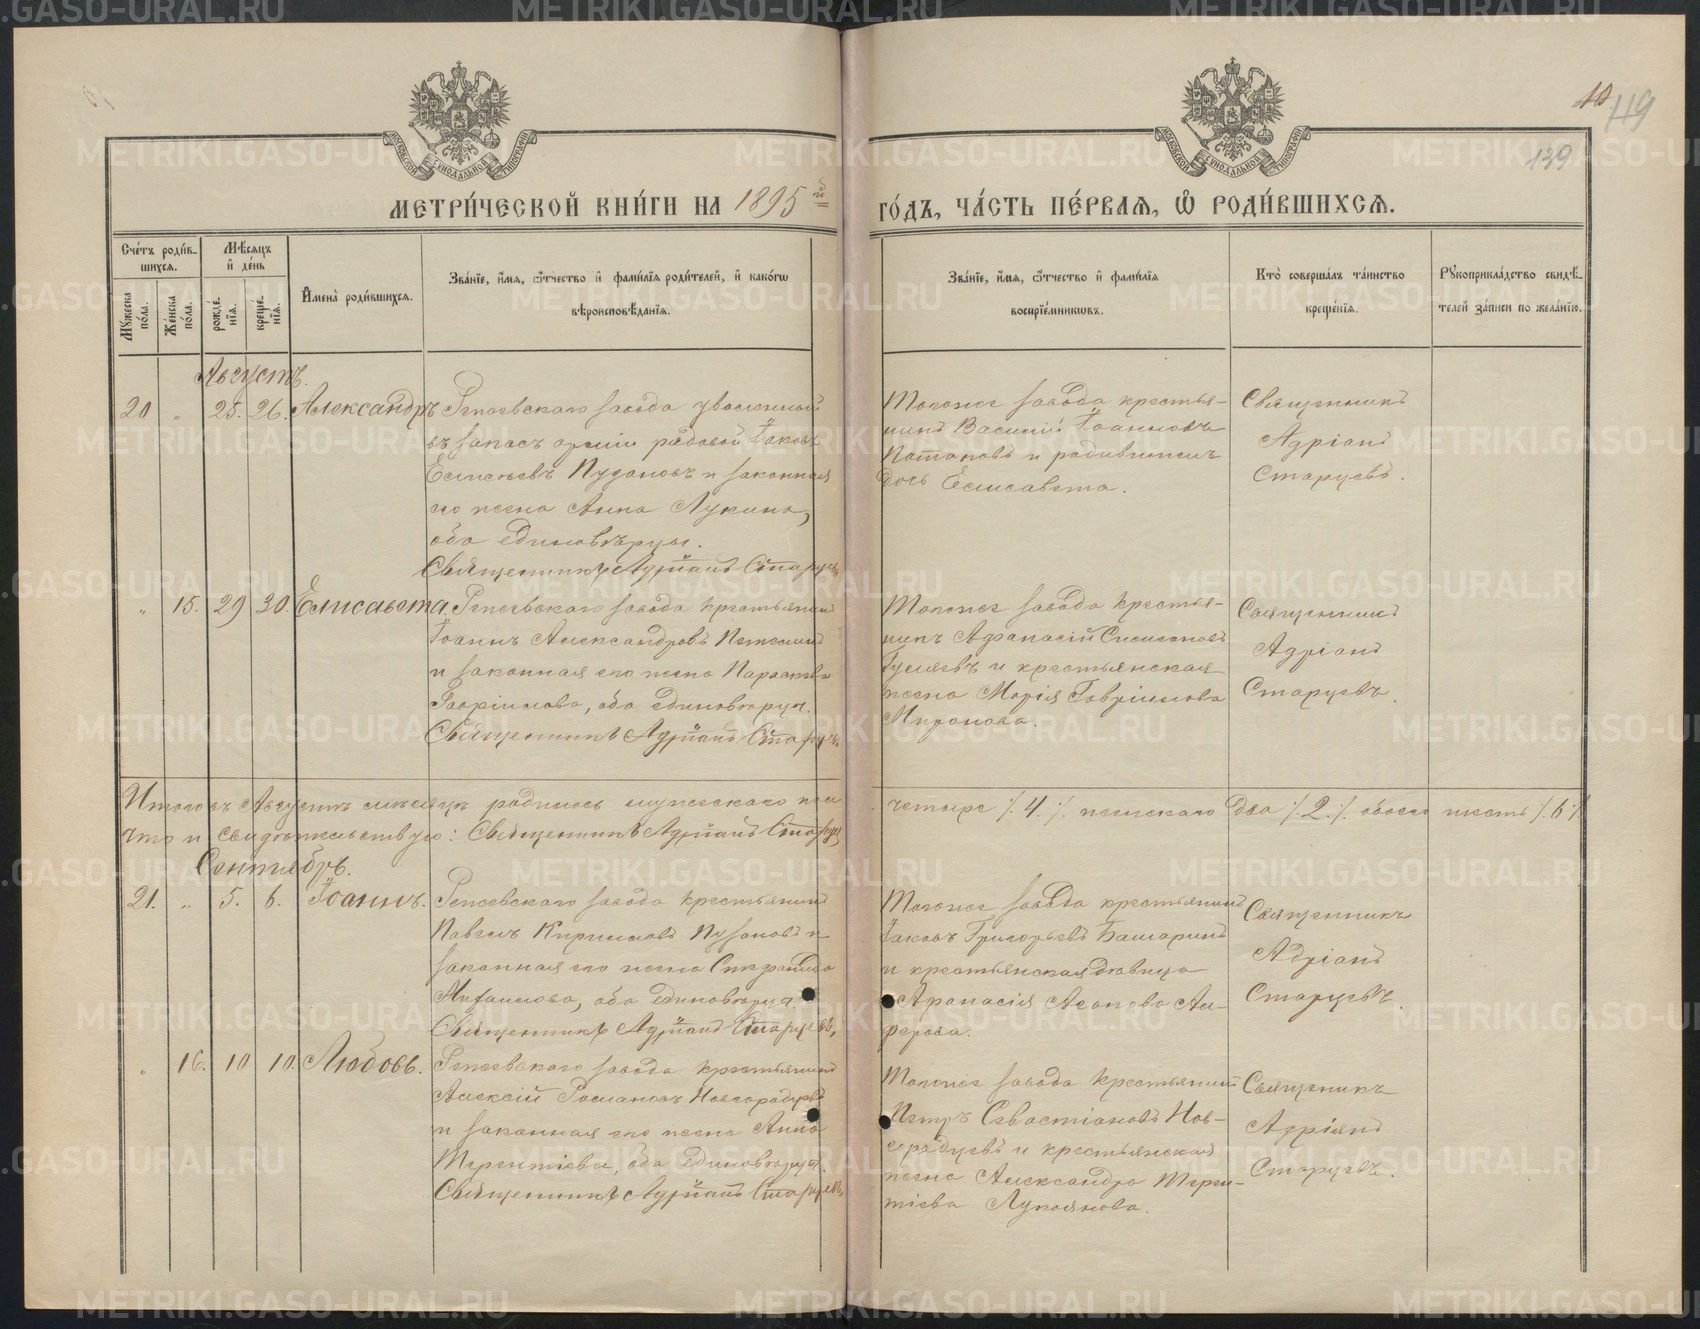 10
119
139
МОСКОВСКОЙ СѴНОДАЛЬНОЙ ТИПОГРАФІИ
МОСКОВСКОЙ СѴНОДАЛЬНОЙ ТИПОГРАФІИ
МЕТРИ́ЧЕСКОЙ КНИ́ГИ НА 1895 й ГО́ДЪ, ЧА́СТЬ ПЕ́РВАЯ, Ѡ҆ РОДИ́ВШИХСЯ.
Сче́тъ роди́в-
шихся.
Мѣ́сяцъ
и҆ де́нь
Му́жеска по́ла.
Же́нска по́ла.
рожде́нїя.
креще́нїя.
И҆мена̀ роди́вшихся.
Зва́нїе, и҆́мя, ѻ҆́тчество и҆ фами́лїя роди́телей, и҆ како́гѡ
вѣроисповѣ́данїя.
Зва́нїе, и҆́мя, ѻ҆́тчество и҆ фами́лїя
воспрїе́мникѡвъ.
Кто̀ соверша́лъ та́инство
креще́нїя.
Рукоприкла́дство свидѣ́-
телей за́писи по жела́нїю.
Августъ.
20 „ 25. 26. Александръ
Режевскаго завода уволенный
въ запасъ арміи рядовой Іаковъ
Пузановъ и законная
его жена Анна Лукина,
оба единовѣрцы.
Священникъ Адріанъ Старцевъ
Тогоже завода крестья-
нинъ Василій Іоанновъ
Потаповъ и родившихъ
дочь Елисавета.
Священникъ
Адріанъ
Старцевъ.
„ 15. 29 30. Елисавета
Режевскаго завода крестьянинъ
Іоаннъ Александровъ
и законная его жена Параскева
Гавріилова, оба единовѣрцы.
Священникъ Адріанъ Старцевъ
Тогоже завода крестья-
нинъ Афанасій
Гуляевъ и крестьянская
жена Марія Гавріилова
Миронова.
Священникъ
Адріанъ
Старцевъ.
Итого въ Августѣ мѣсяцѣ родилось мужескаго пола четыре /. 4 ./. женскаго два /. 2 ./. обоего шесть /. 6 ./.
что и свидѣтельствую: Священникъ Адріанъ Старцевъ
Сентябрь.
21. „ 5. 6. Іоаннъ.
Режевскаго завода крестьянинъ
Павелъ Кирилловъ Пузановъ и
законная его жена Стефанида
Михаилова, оба единовѣрцы.
Священникъ Адріанъ Старцевъ.
Тогоже завода крестьянинъ
Іаковъ Григорьевъ Башаринъ
и крестьянская дѣвица
Афанасія Агапова Ал-
ферова.
Священникъ
Адріанъ
Старцевъ.
„ 16. 10 10. Любовь.
Режевскаго завода крестьянинъ
Алексій Романовъ Новгородцевъ
и законная его жена Анна
Терентіева, оба единовѣрцы.
Священникъ Адріанъ Старцевъ
Тогоже завода крестьянинъ
Петръ Севастіановъ Нов-
городцевъ и крестьянская
жена Александра Терен-
тіева Лукоянова.
Священникъ
Адріанъ
Старцевъ.
METRIKI.GASO-URAL.RU